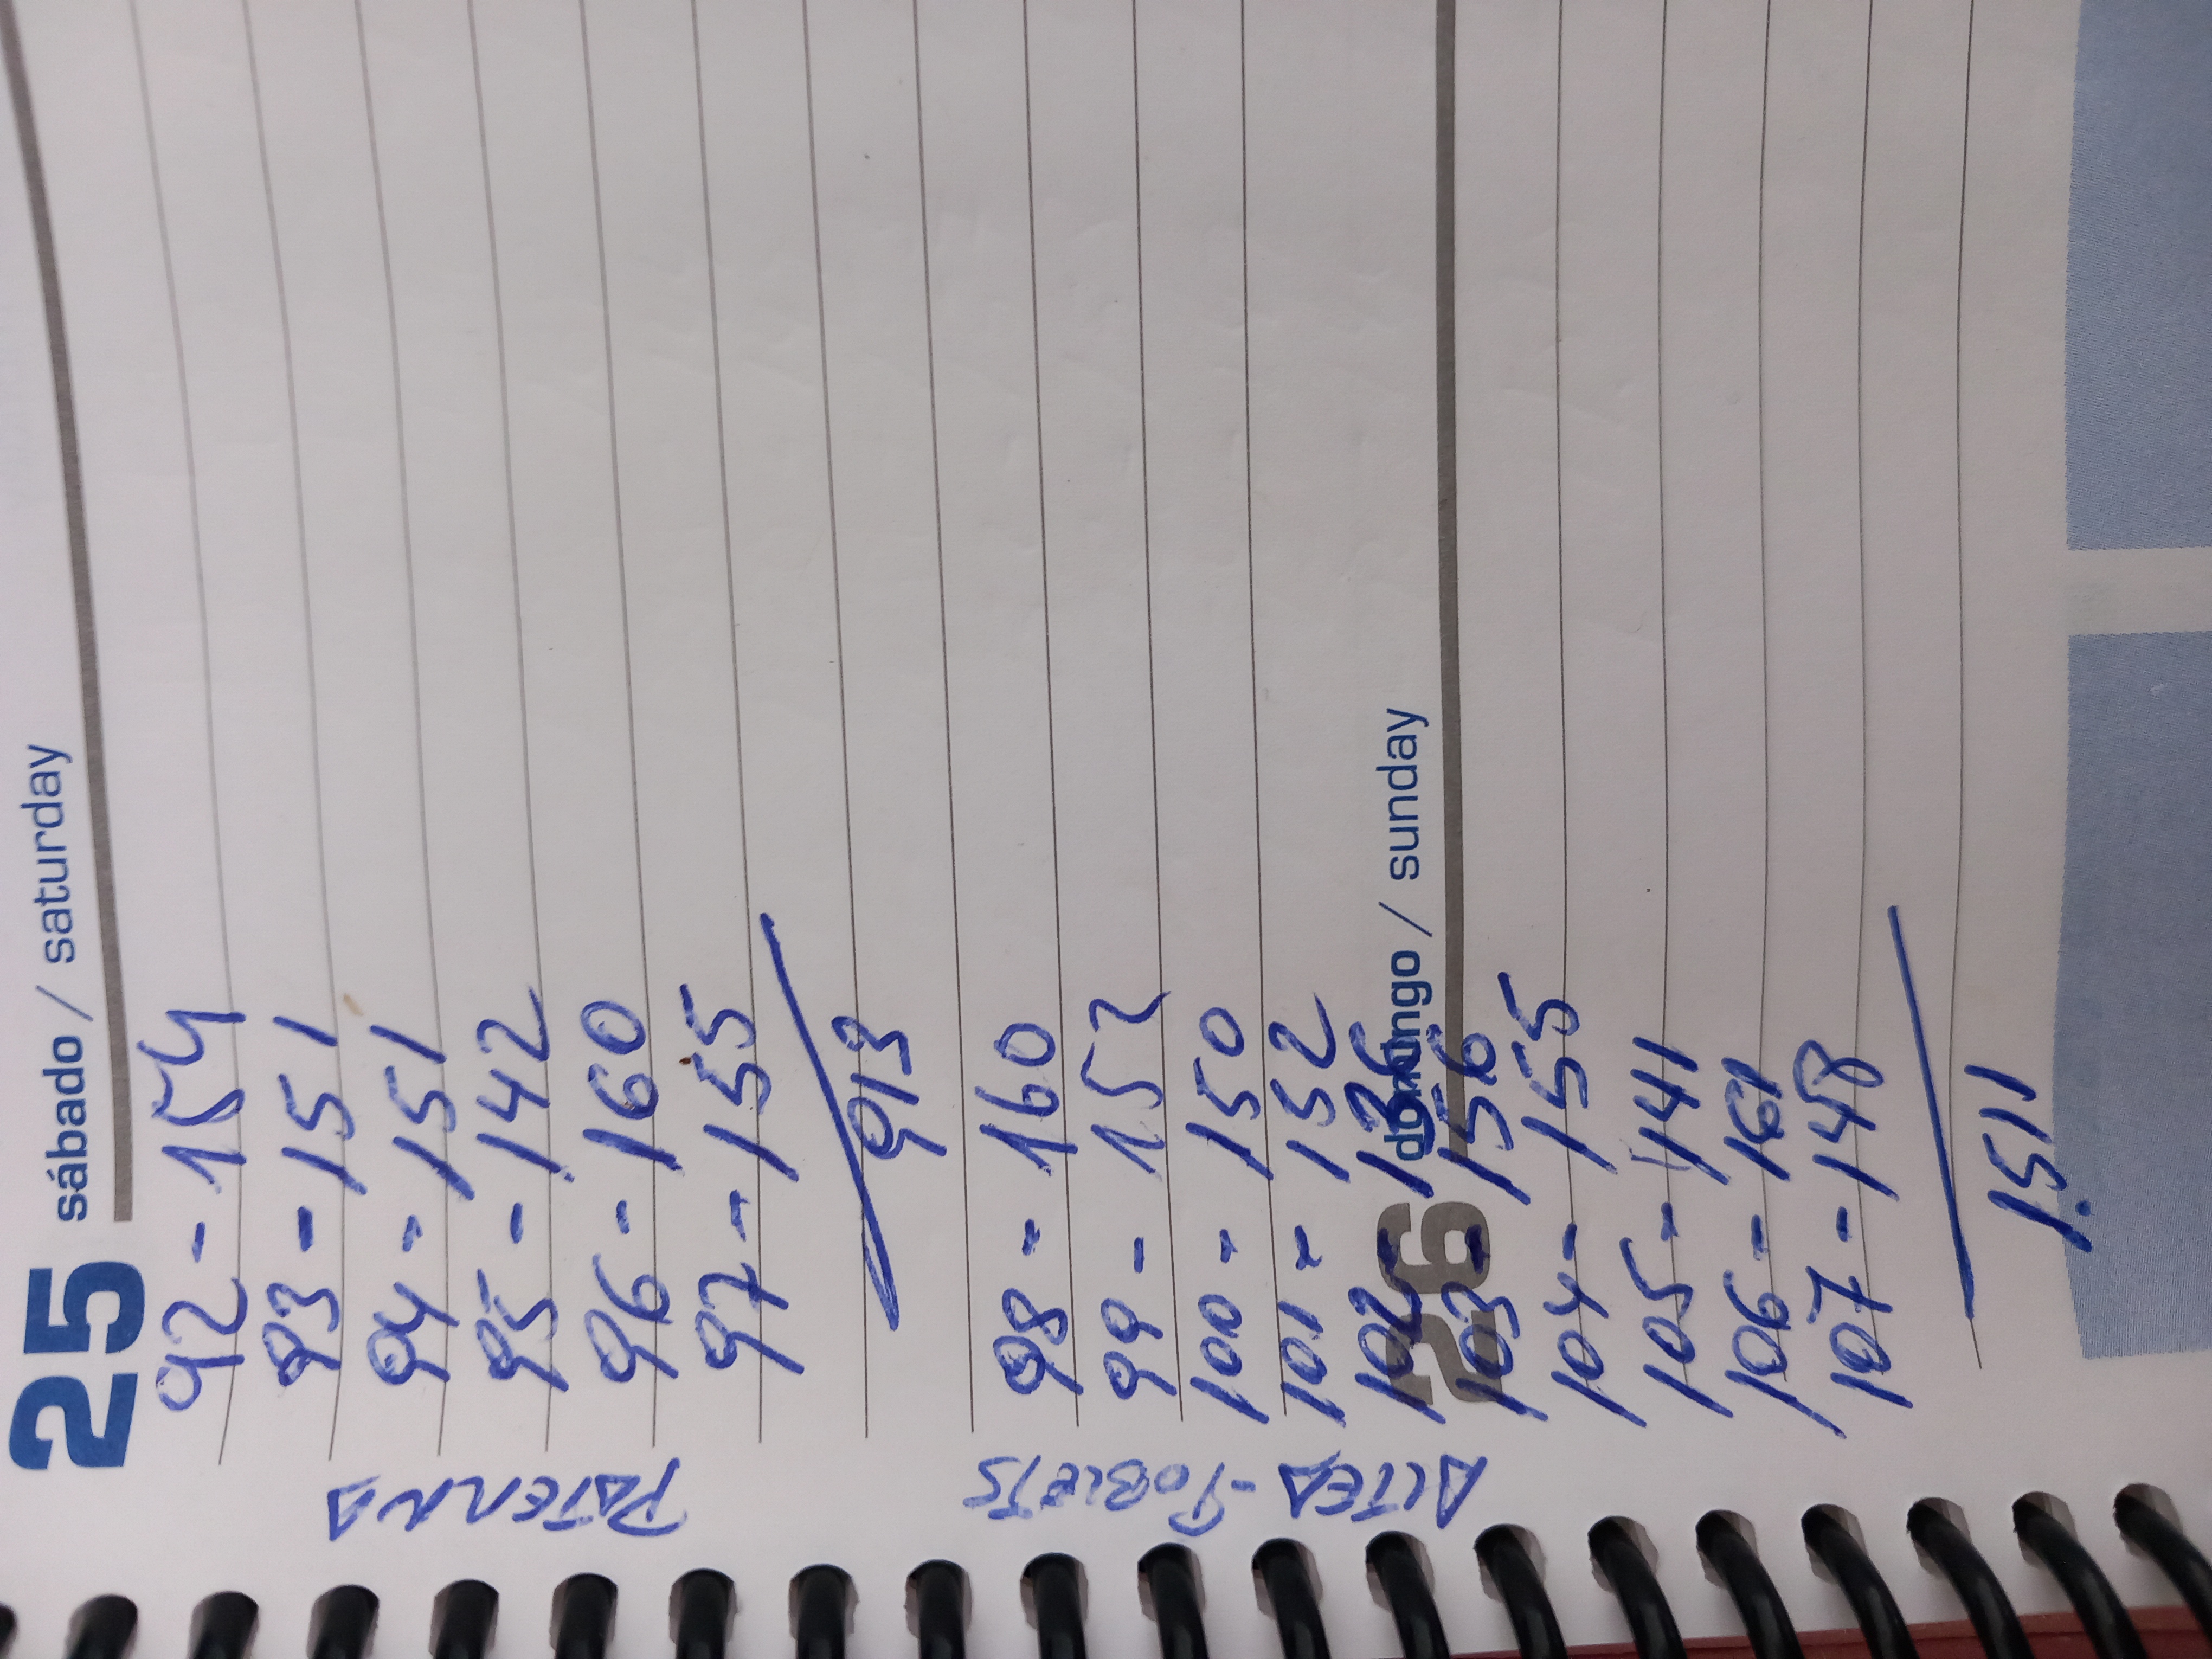 25 sábado / saturday
92 - 154
93 - 151
94 - 151
95 - 142
96 - 160
97 - 155
913
PATERNA
98 - 160
99 - 152
100 - 150
101 - 152
102 - 136
26 domingo / sunday
103 - 156
104 - 155
105 - 141
106 - 161
107 - 148
1.511
ALTEA - POBLETS